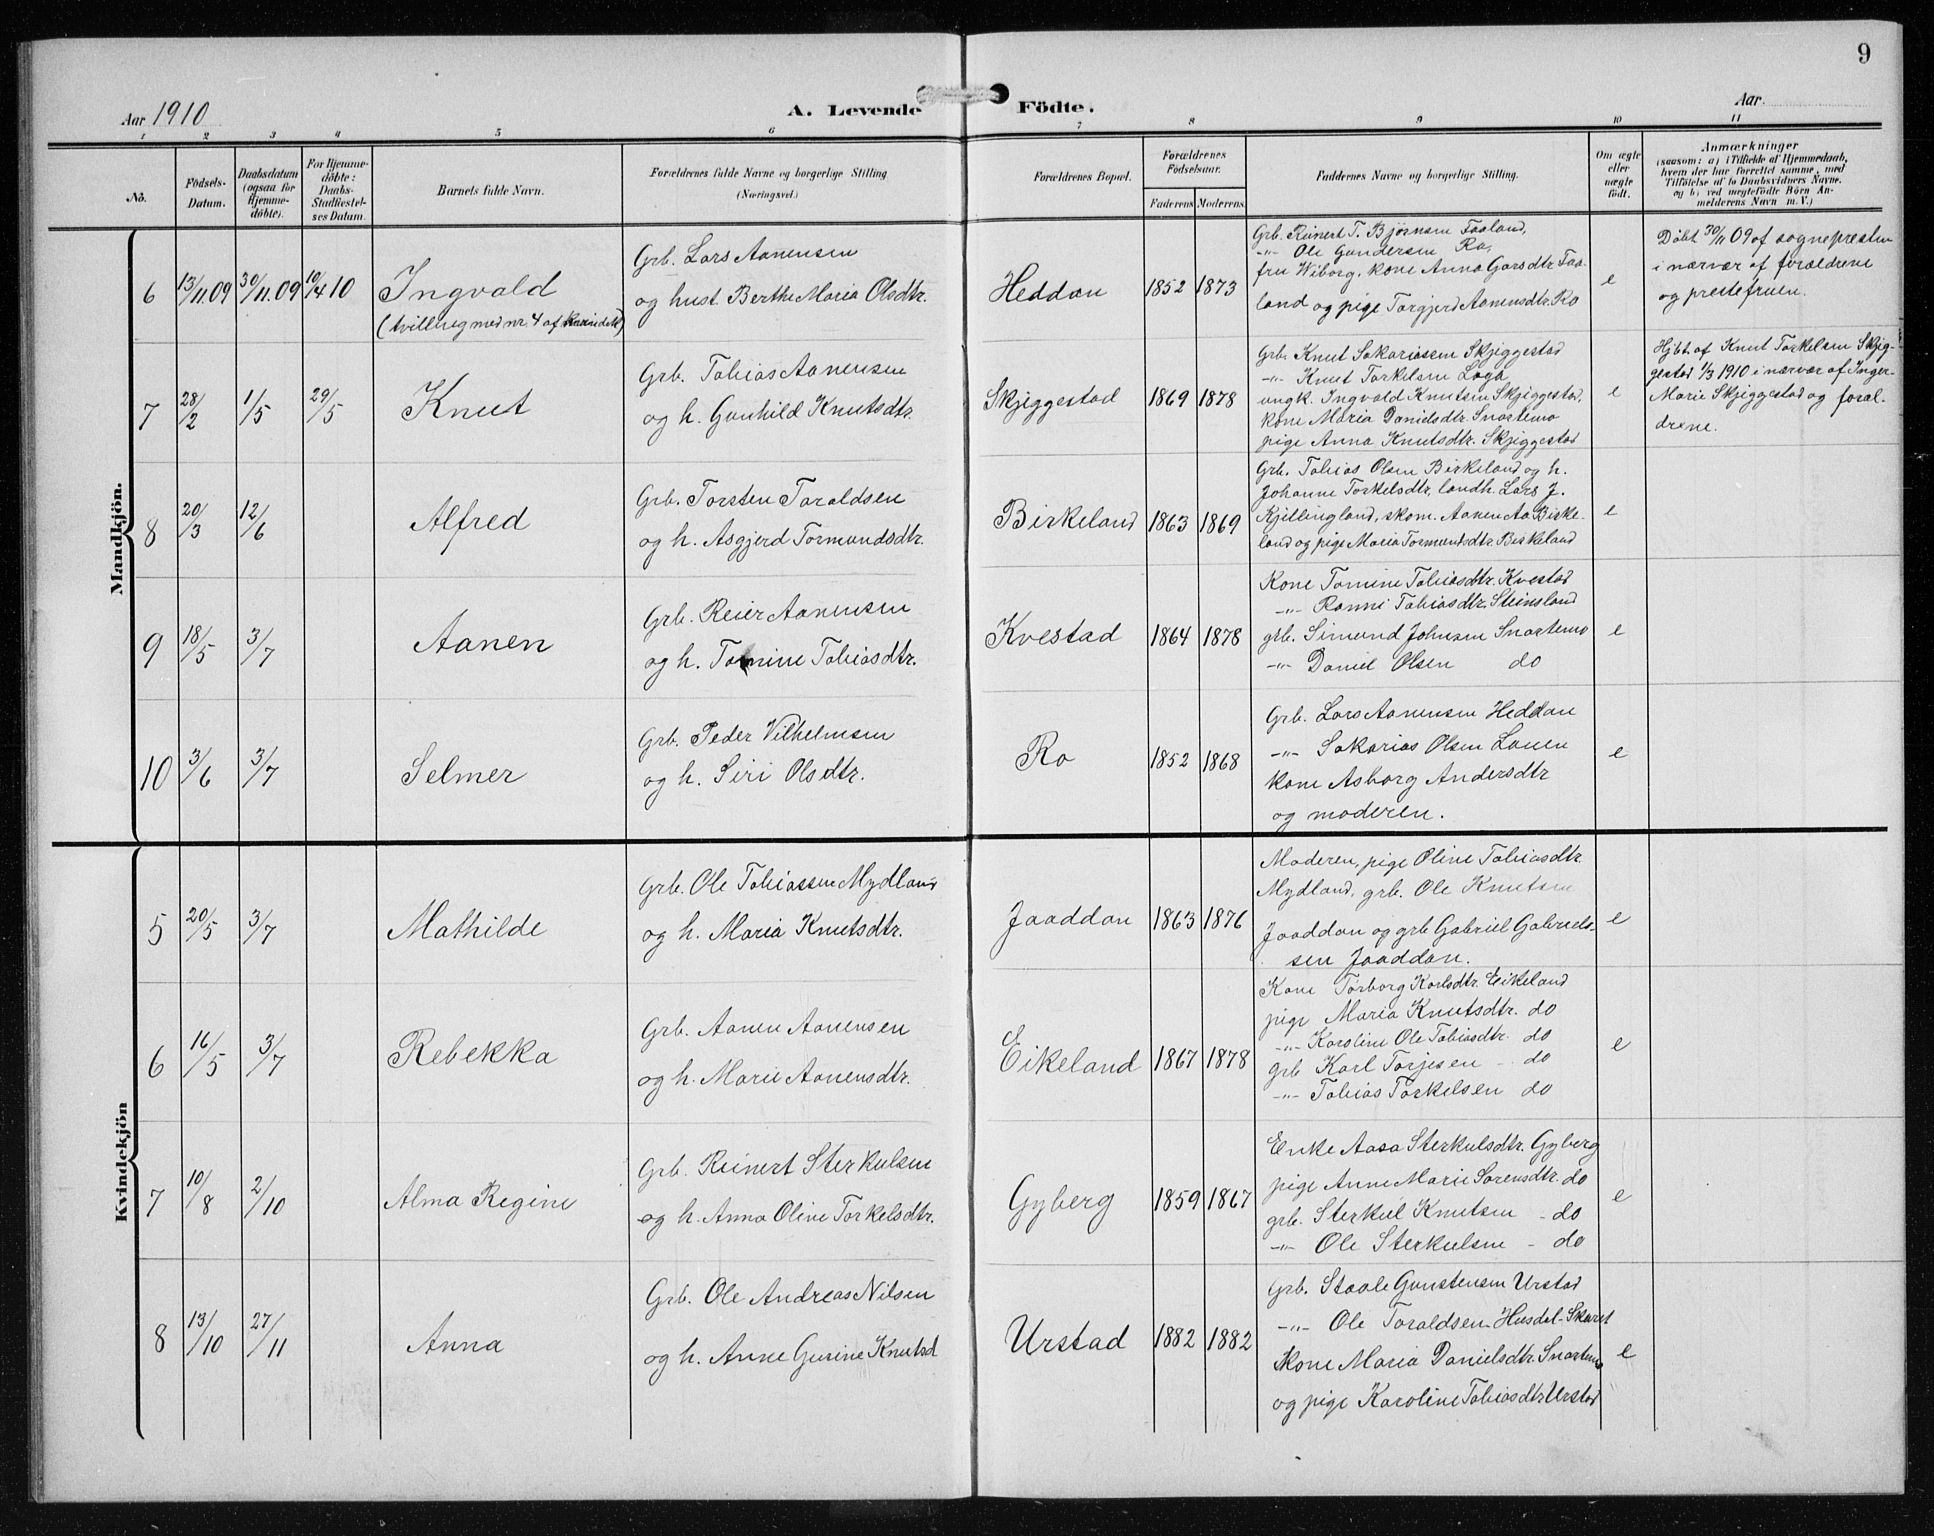 9
Aar 1910
A. Levende Födte.
Aar
1 2 3 4 5 6 7 8 9 10 11
No.
Födsels-
Datum.
Daabsdatum
(ogsaa for
Hjemme-
döbte).
For Hjemme-
döbte:
Daabs-
Stadfæstel-
ses Datum.
Barnets fulde Navn.
Forældrenes fulde Navne og borgerlige Stilling
(Næringsvei.)
Forældrenes Bopæl.
Forældrenes
Födselsaar.
Faderens Moderens
Faddernes Navne og borgerlige Stilling.
Om ægte
eller
uægte
födt.
Anmærkninger
(saasom: a) i Tilfælde af Hjemmedaab,
hvem der har forrettet samme, med
Tilföielse af to Daabsvidners Navne.
og b) ved uægtefödte Börn An-
melderens Navn m. V.)
Mandkjön.
6
13/11 09
30/11 09
10/4 10
Ingvald
(tvilling med nr. 4 af kvindek)
Grb. Lars Aanensen
og hust. Berthe Maria Olsdtr.
Heddan
1852 1873
Grb. Reinert T. Bjørnsen Faaland,
-"- Ole Gundersen Ro,
fru Wiborg, kone Anna Garsdtr. Faa-
land og pige Torgjerd Aanensdtr. Ro
e
Døbt 30/11 09 af sognepresten
i nærvær af forældrene
og prestefruen.
7
28/2
1/5
29/5
Knut
Grb. Tobias Aanensen
og h. Gunhild Knutsdtr.
Skjeggestad
1869 1878
Grb. Knut Sakariassen Skjeggestad
-"- Knut Torkelsen Laga
ungk. Ingvald Knutsen Skjeggestad,
kone Maria Danielsdtr. Snartemo
pige Anna Knutsdtr. Skjeggestad
e
Hjbt. af Knut Torkelsen Skjeg-
gestad 1/3 1910 i nærvær af Inger
Marie Skjeggestad og foræl-
drene.
8
20/3
12/6
Alfred
Grb. Torsten Taraldsen
og h. Asgjerd Tormundsdtr.
Birkeland
1863 1869
Grb. Tobias Olsen Birkeland og h.
Johanne Torkelsdtr, landh. Lars J.
Kjellingland, skom. Aanen Aa. Birke-
land og pige Maria Tormundsdtr. Birkeland
e
9
18/5
3/7
Aanen
Grb. Reier Aanensen
og h. Tomine Tobiasdtr.
Kvestad
1864 1878
Kone Tomine Tobiasdtr. Kvestad
-"- Ranni Tobiasdtr. Steinsland
grb. Simund Johnsen Snartemo
-"- Daniel Olsen do
e
10
3/6
3/7
Selmer
Grb. Peder Vilhelmsen
og h. Siri Olsdtr.
Ro
1852 1868
Grb. Lars Aanensen Heddan
-"- Sakarias Olsen Lauen
kone Asborg Andersdtr
og moderen.
e
Kvindekjön
5
20/5
3/7
Mathilde
Grb. Ole Tobiassen Mydland
og h. Maria Knutsdtr.
Jaaddan
1863 1876
Moderen, pige Oline Tobiasdtr
Mydland, grb. Ole Knutsen
Jaaddan og grb Gabriel Gabriels-
sen Jaaddan.
e
6
16/5
3/7
Rebekka
Grb. Aanen Aanensen
og h. Marie Aanensdtr.
Eikeland
1867 1878
Kone Torborg Karlsdtr. Eikeland
pige Maria Knutsdtr. do
-"- Karoline Ole Tobiasdtr. do
grb Karl Torjesen - do
-"- Tobias Torkelsen do
e
7
10/8
2/10
Alma Regine
Grb. Reinert Sterkulsen
og h. Anna Oline Torkelsdtr.
Gyberg
1859 1867
Enke Aasa Sterkulsdtr. Gyberg
pige Anne Marie Sørensdtr. do
grb. Sterkul Knutsen - do
-"- Ole Sterkulsen - do
e
8
13/10
27/11
Anna
Grb. Ole Andreas Nilsen
og h. Anne Gurine Knutsd
Urstad
1882 1882
Grb. Staale Gunstensen Urstad
-"- Ole Taraldsen Husdal-Skaret
Kone Maria Danielsdtr. Snartemo
og pige Karoline Tobiasdtr Urstad
e